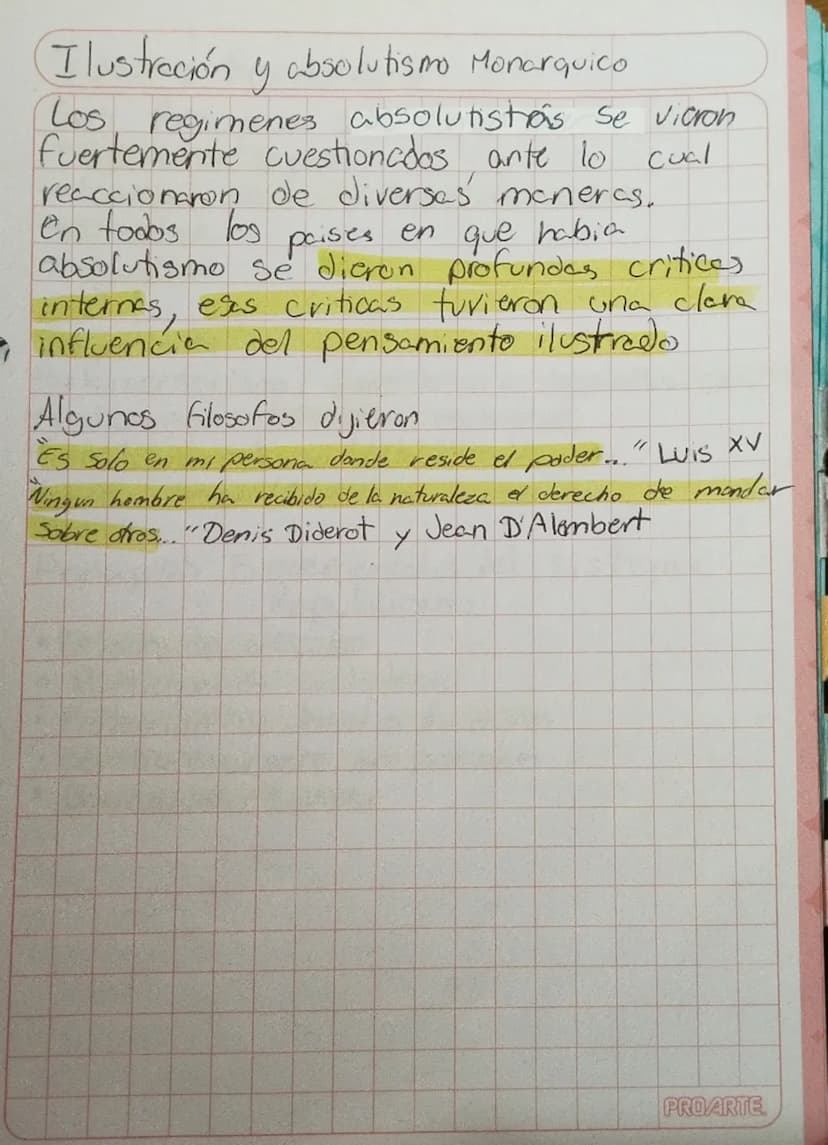 Ilustración y absolutismo Monarquico
Los regimenes absolutistas se vieron
fuertemente cuestionados, ante lo cual
reaccionaron de diversas maneras.
En todos los paises en que habia
absolutismo se dieron profundas criticas
internas, esas criticas tuvieron una clara
influencia del pensamiento ilustrado
Algunos filosofos dijieron
"Es solo en mi persona donde reside el poder..." Luis XV
"Ningun hombre ha recibido de la naturaleza el derecho de mandar
sobre otros..." Denis Diderot y Jean D'Alembert
PROARTE